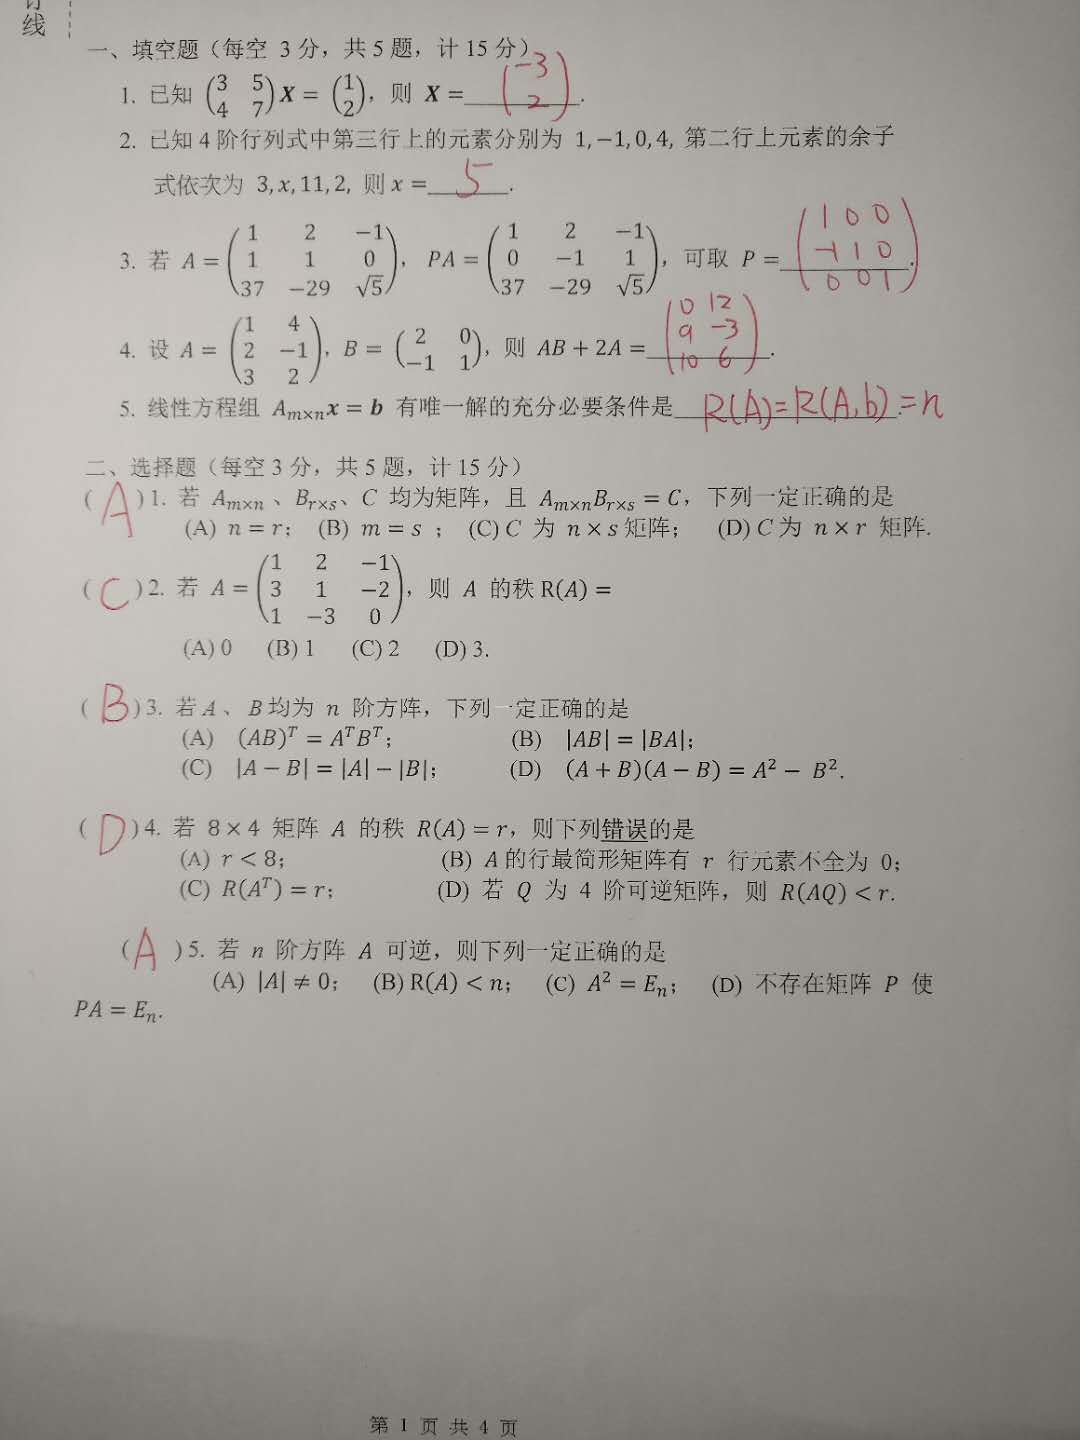 线
一、填空题（每空 3 分，共 5 题，计 15 分）
1. 已知 (3 5; 4 7) X = (1; 2)，则 X = (-3; 2).
2. 已知 4 阶行列式中第三行上的元素分别为 1, −1, 0, 4, 第二行上元素的余子
式依次为 3, x, 11, 2, 则 x = 5.
3. 若 A = (1 2 −1; 1 1 0; 37 −29 √5)，PA = (1 2 −1; 0 −1 1; 37 −29 √5)，可取 P = (1 0 0; -1 1 0; 0 0 1).
4. 设 A = (1 4; 2 −1; 3 2)，B = (2 0; −1 1)，则 AB + 2A = (0 12; 9 -3; 10 6).
5. 线性方程组 Am×n x = b 有唯一解的充分必要条件是 R(A)=R(A,b)=n.
二、选择题（每空 3 分，共 5 题，计 15 分）
( A ) 1. 若 Am×n 、Br×s、C 均为矩阵，且 Am×nBr×s = C，下列一定正确的是
(A) n = r； (B) m = s ； (C) C 为 n × s 矩阵； (D) C 为 n × r 矩阵.
( C ) 2. 若 A = (1 2 −1; 3 1 −2; 1 −3 0)，则 A 的秩 R(A) =
(A) 0 (B) 1 (C) 2 (D) 3.
( B ) 3. 若 A 、 B 均为 n 阶方阵，下列一定正确的是
(A) (AB)ᵀ = AᵀBᵀ； (B) |AB| = |BA|；
(C) |A − B| = |A| − |B|； (D) (A + B)(A − B) = A² − B².
( D ) 4. 若 8 × 4 矩阵 A 的秩 R(A) = r，则下列错误的是
(A) r < 8； (B) A 的行最简形矩阵有 r 行元素不全为 0；
(C) R(Aᵀ) = r； (D) 若 Q 为 4 阶可逆矩阵，则 R(AQ) < r.
( A ) 5. 若 n 阶方阵 A 可逆，则下列一定正确的是
(A) |A| ≠ 0； (B) R(A) < n； (C) A² = Eₙ； (D) 不存在矩阵 P 使
PA = Eₙ.
第 1 页 共 4 页